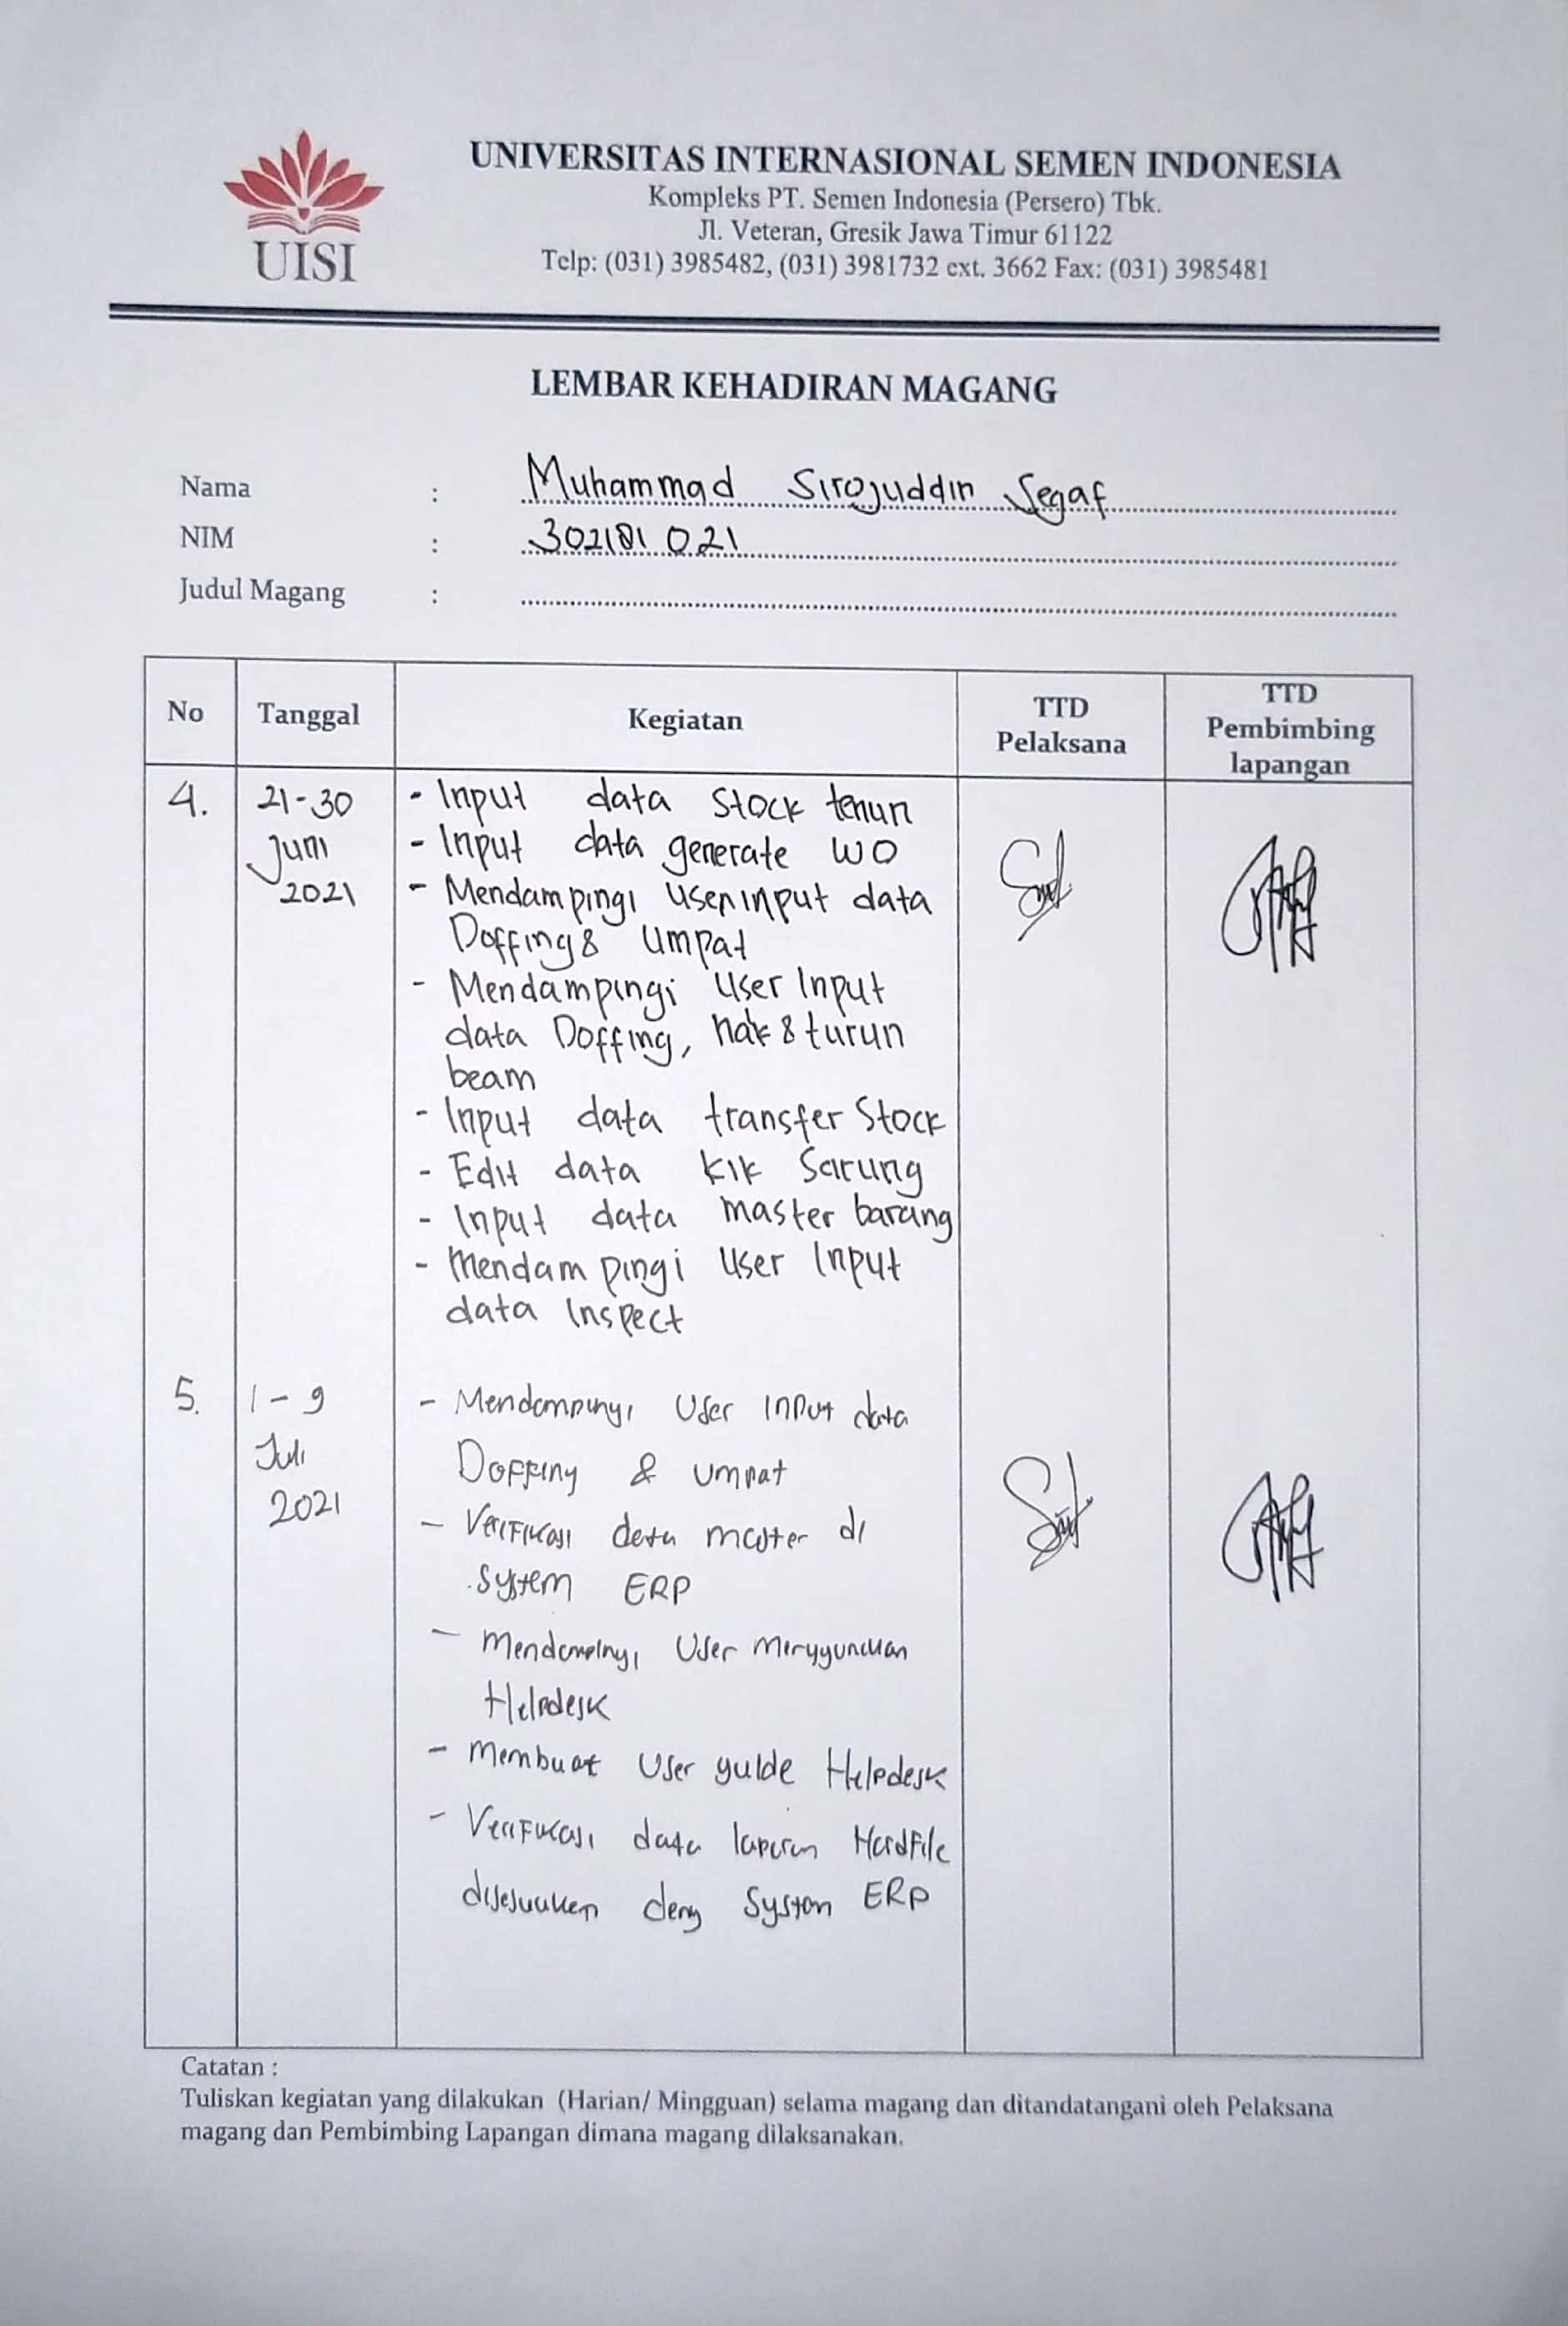 UISI
UNIVERSITAS INTERNASIONAL SEMEN INDONESIA
Kompleks PT. Semen Indonesia (Persero) Tbk.
Jl. Veteran, Gresik Jawa Timur 61122
Telp: (031) 3985482, (031) 3981732 ext. 3662 Fax: (031) 3985481
LEMBAR KEHADIRAN MAGANG
Nama : Muhammad Sirojuddin Segaf
NIM : 302181 021
Judul Magang :
No Tanggal Kegiatan TTD Pelaksana TTD Pembimbing lapangan
4. 21-30 Juni 2021
- Input data Stock tenun
- Input data generate WO
- Mendampingi user input data
Doffing & umpat
- Mendampingi User Input
data Doffing, naik & turun
beam
- Input data transfer Stock
- Edit data kik Sarung
- Input data master barang
- Mendampingi User Input
data Inspect
5. 1 - 9 Juli 2021
- Mendampingi User input data
Doffing & umpat
- Verifikasi data master di
System ERP
- Mendampingi User menggunakan
Helpdesk
- Membuat User guide Helpdesk
- Verifikasi data laporan Hardfile
disesuaikan deng System ERP
Catatan :
Tuliskan kegiatan yang dilakukan (Harian/ Mingguan) selama magang dan ditandatangani oleh Pelaksana
magang dan Pembimbing Lapangan dimana magang dilaksanakan.